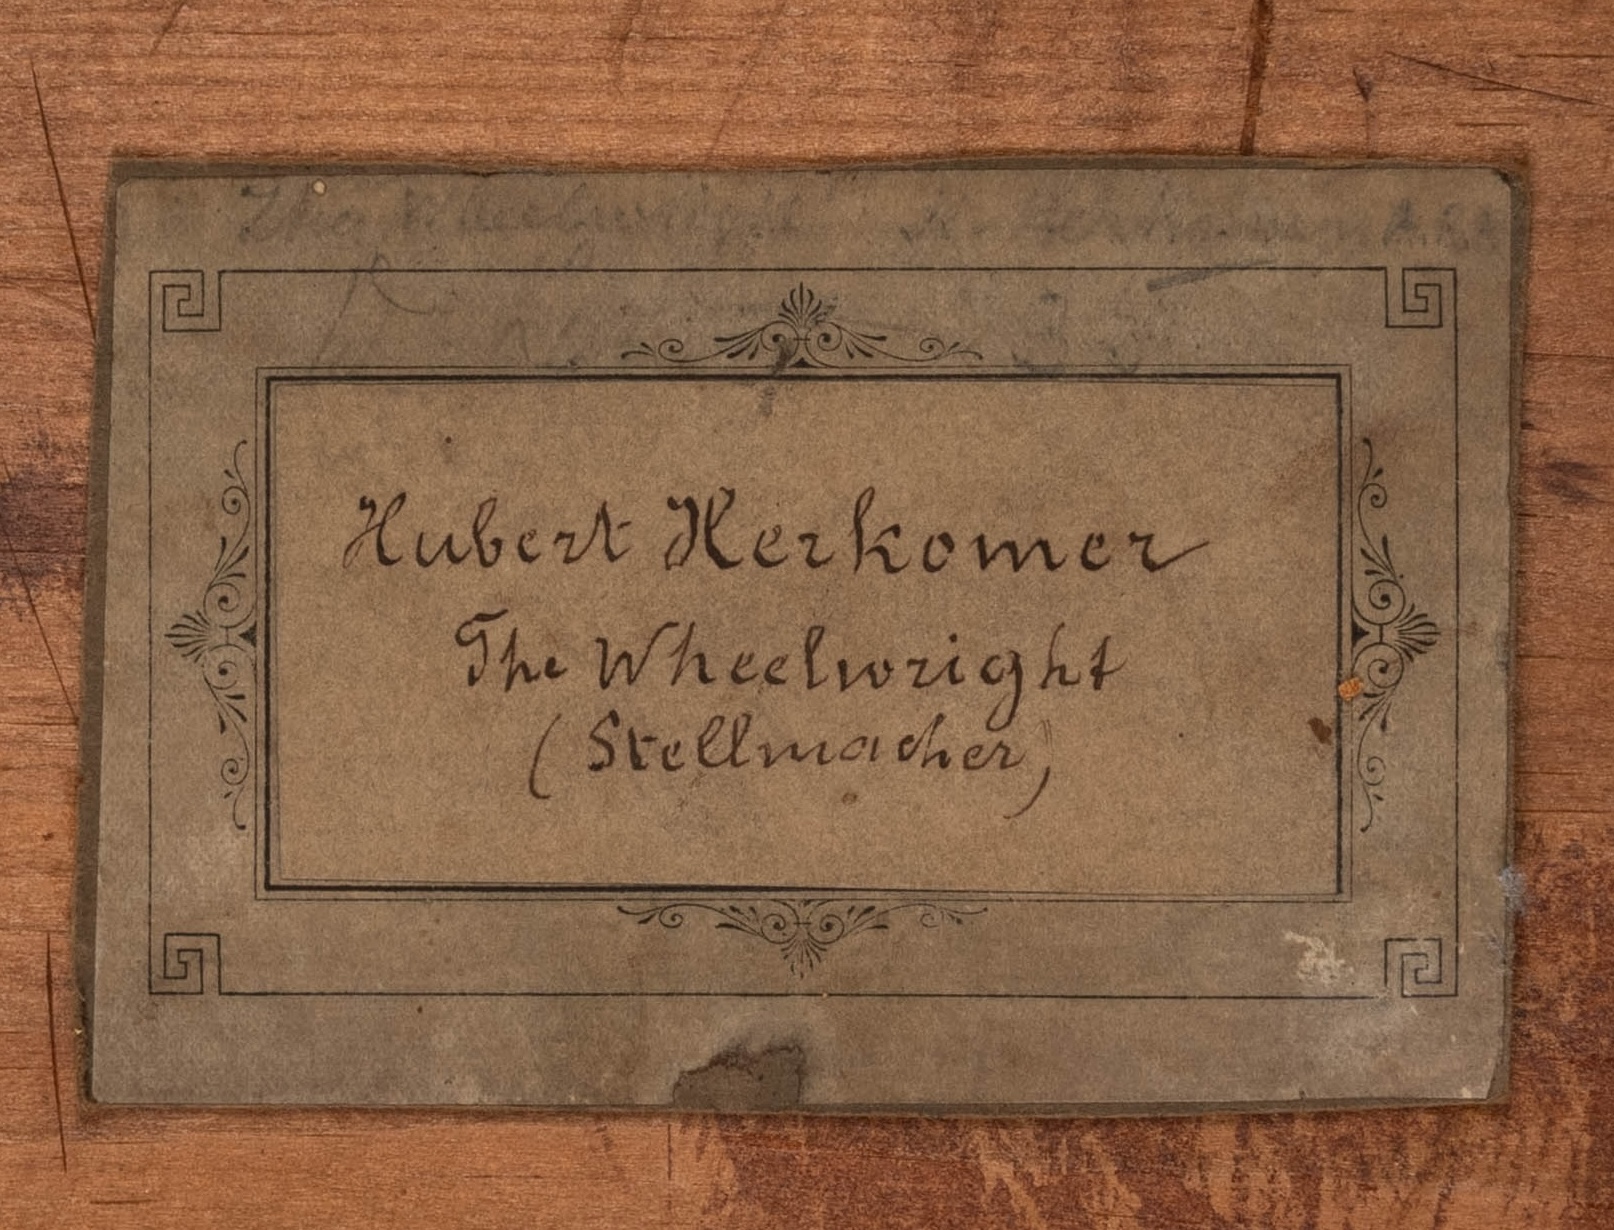 The Wheelwright H. Herkomer A.R.A
Hubert Herkomer
The Wheelwright
(Stellmacher)